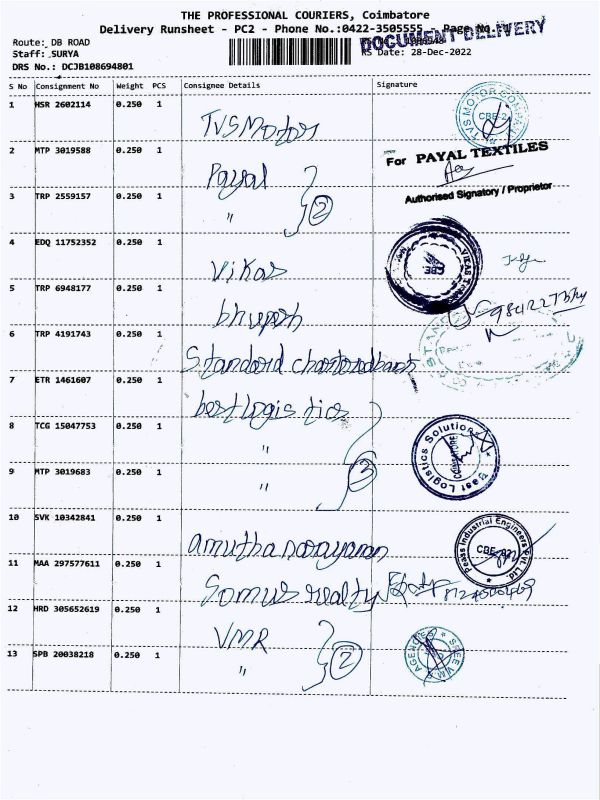 THE PROFESSIONAL COURIERS, Coimbatore
Delivery Runsheet - PC2 - Phone No.:0422-3505555 - Page No.
DOCUMENT DELIVERY
Route: DB ROAD
Staff: SURYA
RS Date: 28-Dec-2022
DRS No.: DCJB108694801
S No Consignment No Weight PCS Consignee Details Signature
1 HSR 2602114 0.250 1 TVS Motors
TVS MOTOR COMPANY CBE-2
2 MTP 3019588 0.250 1 Payal
For PAYAL TEXTILES
Authorised Signatory / Proprietor
3 TRP 2559157 0.250 1 " 2
4 EDQ 11752352 0.250 1 Vikas
VIKAS CBE.
5 TRP 6948177 0.250 1 bhupesh
6 TRP 4191743 0.250 1 Standord chartoredbank
7 ETR 1461607 0.250 1 bestlogistics
8 TCG 15047753 0.250 1 "
Best Logistics Solution COIMBATORE
9 MTP 3019683 0.250 1 " 3
10 SVK 10342841 0.250 1 amutha narayanan
Peass Industrial Engineers Pvt. Ltd. CBE
11 MAA 297577611 0.250 1 Somus realty
12 HRD 305652619 0.250 1 VMR
13 SPB 20038218 0.250 1 " 2
SREE VMR AGENCIES